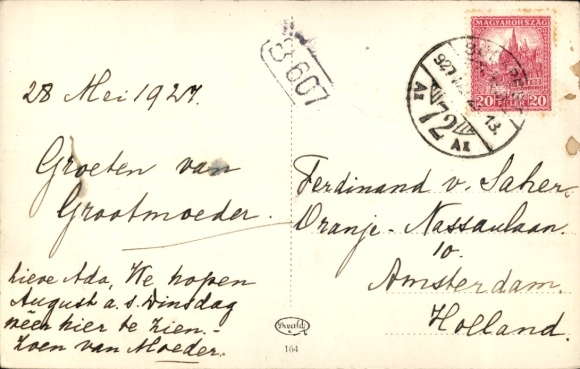 28 Mei 1927.
Groeten van
Grootmoeder.
lieve Ada, We hopen
August a.s. Dinsdag
weer hier te zien. -
Zoen van Moeder.
S 607
MAGYARORSZÁG
20 FILLÉR 20
BUDAPEST
927
13.
Az 72 Az
Ferdinand v. Saher
Oranje-Nassaulaan.
10.
Amsterdam.
Holland.
164